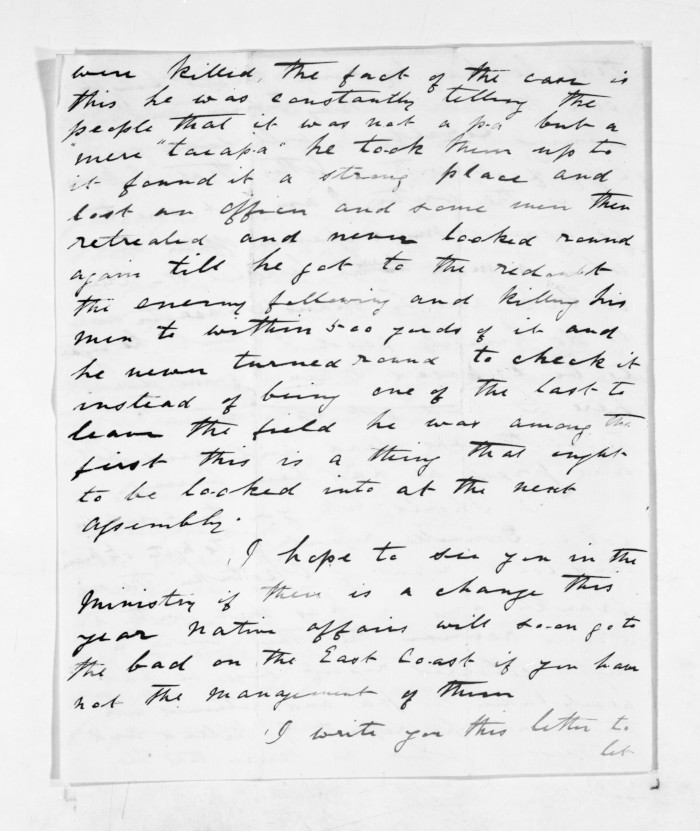 were killed, the fact of the case is
this he was constantly telling the
people that it was not a pa but a
"mere "taiapa" he took them up to
it found it a strong place and
lost an officer and some men then
retreated and never looked round
again till he got to the redoubt
the enemy following and killing his
men to within 500 yards of it and
he never turned round to check it
instead of being one of the last to
leave the field he was among the
first this is a thing that ought
to be looked into at the next
assembly.
I hope to see you in the
Ministry if there is a change this
year Native affairs will soon go to
the bad on the East Coast if you have
not the management of them
I write you this letter to
let